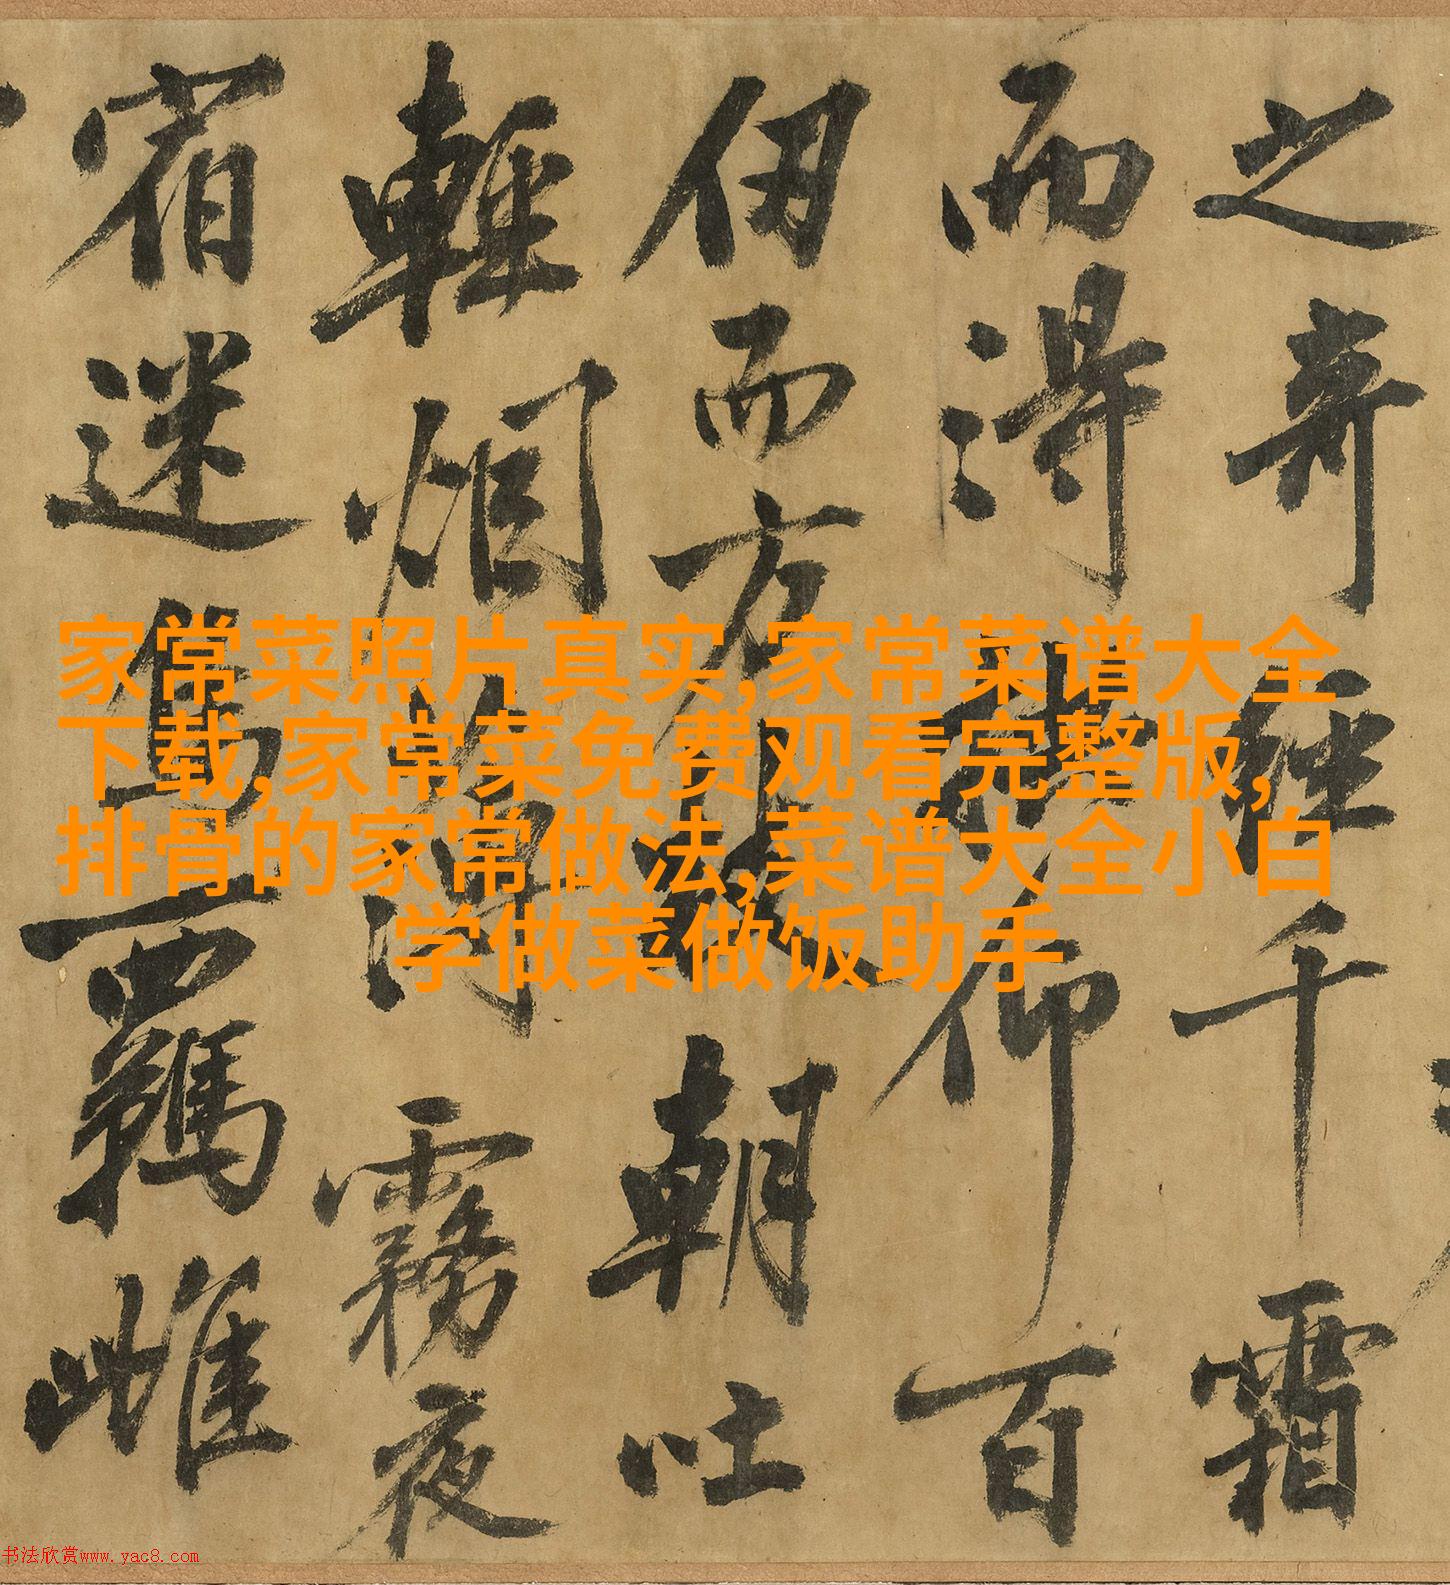 之奇經千霜
而得仰百
仞而方朝吐
輕烟薄霧夜
宿迷鳥羈雌
家常菜照片真实,家常菜谱大全
下载,家常菜免费观看完整版,
排骨的家常做法,菜谱大全小白
学做菜做饭助手
书法欣赏www.yac8.com